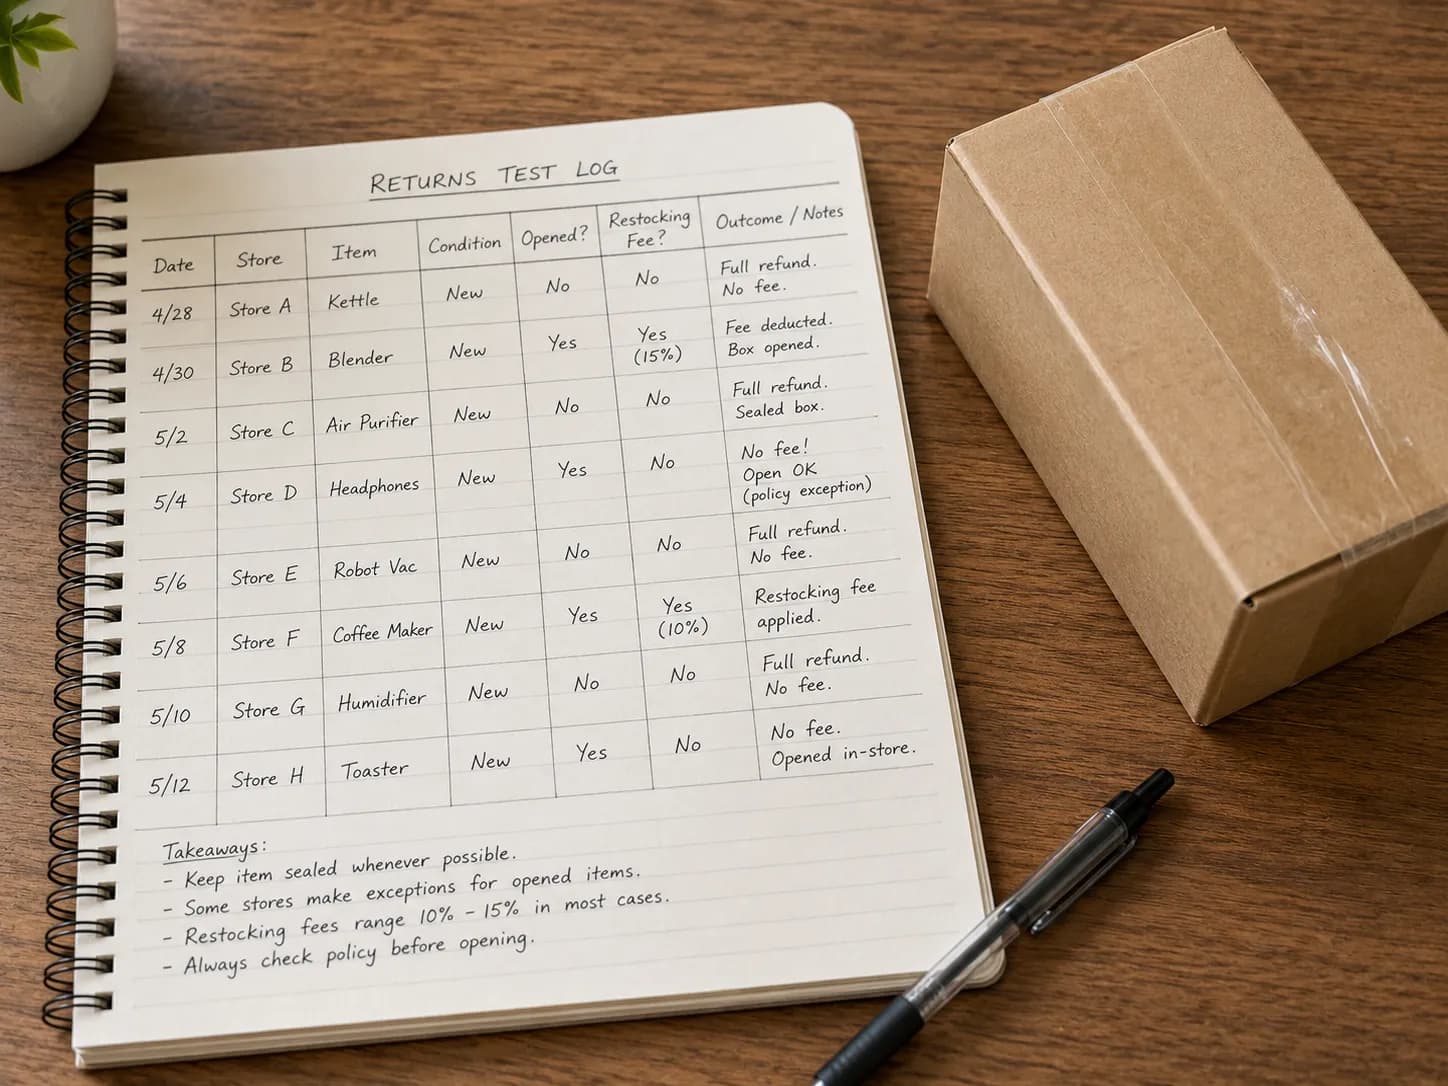 RETURNS TEST LOG
Date Store Item Condition Opened? Restocking Fee? Outcome / Notes
4/28 Store A Kettle New No No Full refund. No fee.
4/30 Store B Blender New Yes Yes (15%) Fee deducted. Box opened.
5/2 Store C Air Purifier New No No Full refund. Sealed box.
5/4 Store D Headphones New Yes No No fee! Open OK (policy exception)
5/6 Store E Robot Vac New No No Full refund. No fee.
5/8 Store F Coffee Maker New Yes Yes (10%) Restocking fee applied.
5/10 Store G Humidifier New No No Full refund. No fee.
5/12 Store H Toaster New Yes No No fee. Opened in-store.
Takeaways:
- Keep item sealed whenever possible.
- Some stores make exceptions for opened items.
- Restocking fees range 10% - 15% in most cases.
- Always check policy before opening.